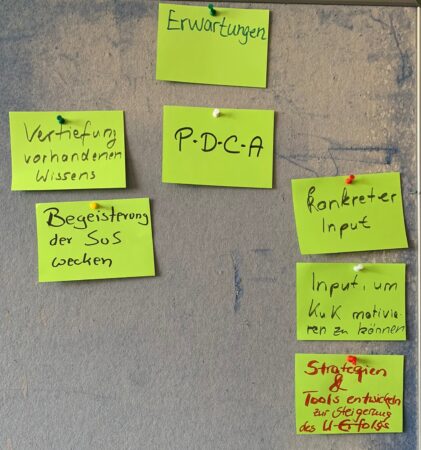 Erwartungen
P-D-C-A
Vertiefung
vorhandenen
Wissens
Begeisterung
der SoS
wecken
Konkreter
Input
Input, um
KuK motivie-
ren zu können
Strategien
&
Tools entwickeln
zur Steigerung
des U-Erfolgs